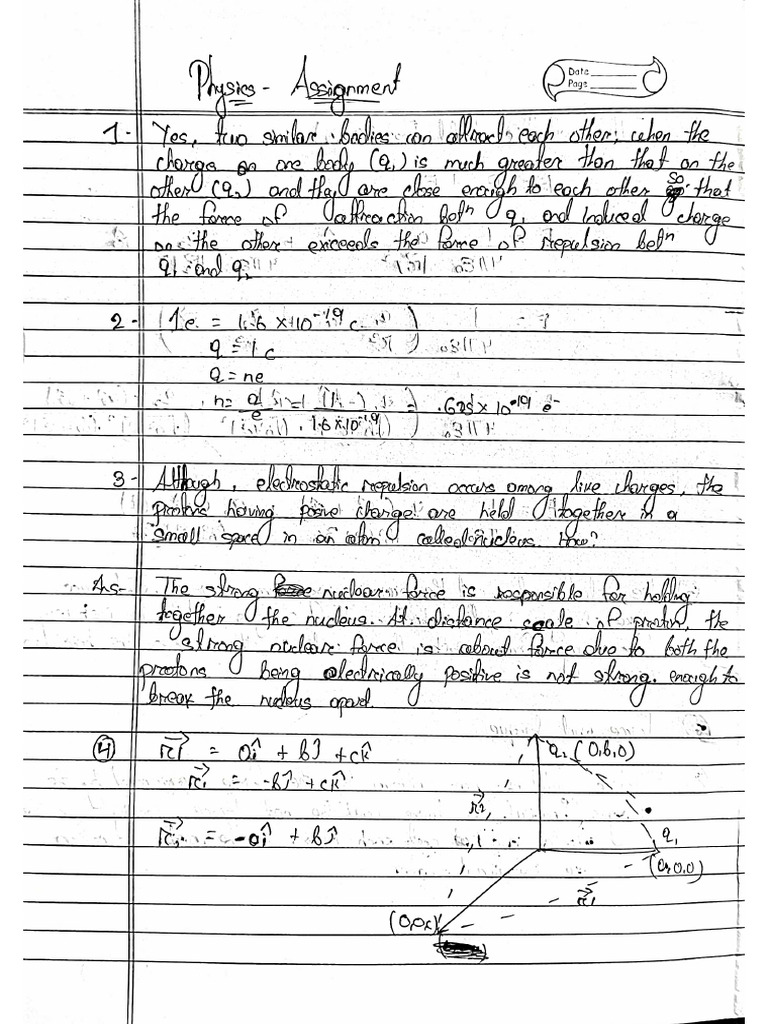 Physics - Assignment
Date
Page
1- Yes, two similar bodies can attract each other, when the
charge on one body (q₁) is much greater than that on the
other (q₂) and they are close enough to each other so that
the force of attraction betⁿ q₁ and induced charge
on the other exceeds the force of repulsion betⁿ
q₁ and q₂
2- 1e = 1.6 × 10⁻¹⁹ c
q = 1 c
Q = ne
n = = 1 = .625 × 10⁻¹⁹ e⁻
e 1.6 × 10⁻¹⁹
3- Although, electrostatic repulsion occurs among like charges, the
protons having posive charge are held together in a
small space in an atom called nucleus. How?
Ans- The strong nuclear force is responsible for holding
together the nucleus. At distance scale of proton, the
strong nuclear force is about force due to both the
protons being electrically positive is not strong enough to
break the nucleus apart.
④ = î + bĵ + ck̂
= -bĵ + ck̂
= -aî + bĵ
q, (0,b,0)
q₁